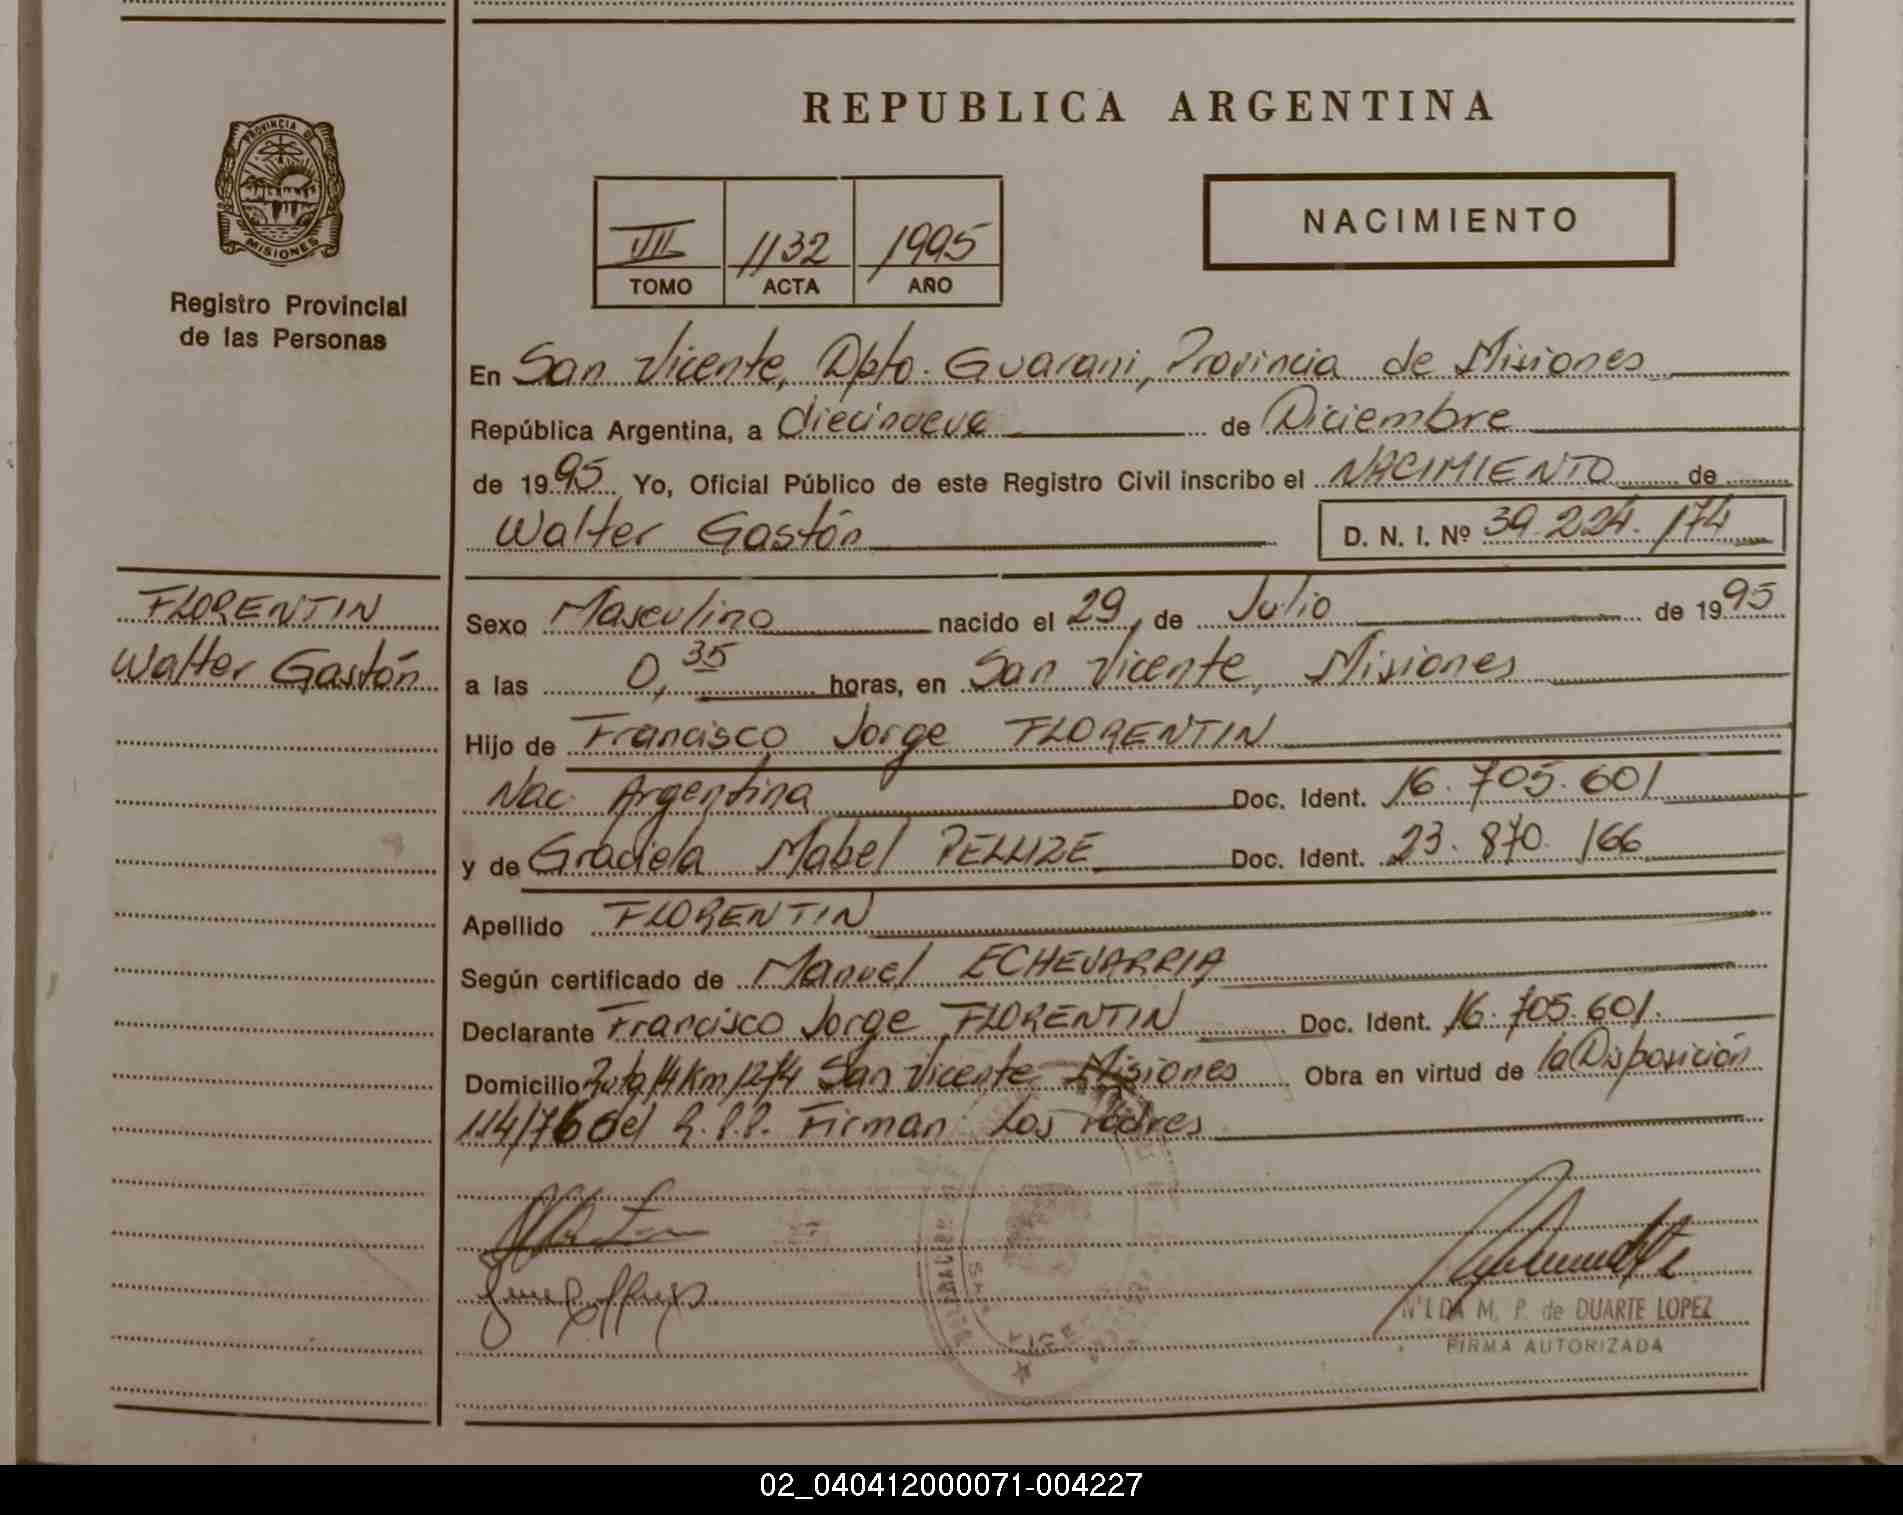 REPUBLICA ARGENTINA
PROVINCIA DE
MISIONES
Registro Provincial
de las Personas
VII 1132 1995
TOMO ACTA AÑO
NACIMIENTO
En San Vicente, Dpto. Guarani, Provincia de Misiones
República Argentina, a diecinueve de Diciembre
de 1995 Yo, Oficial Público de este Registro Civil inscribo el NACIMIENTO de
Walter Gastón D. N. I. Nº 39.224.174
FLORENTIN
Walter Gastón
Sexo Masculino nacido el 29 de Julio de 1995
a las 0,35 horas, en San Vicente, Misiones
Hijo de Francisco Jorge FLORENTIN
Nac. Argentina Doc. Ident. 16.705.601
y de Graciela Mabel PELLIZE Doc. Ident. 23.870.166
Apellido FLORENTIN
Según certificado de Manuel ECHEVARRIA
Declarante Francisco Jorge FLORENTIN Doc. Ident. 16.705.601.
Domicilio Ruta 14 Km 1274 San Vicente Misiones Obra en virtud de la Disposición
114/76 del R.P.P. Firman: Los Padres
NILDA M. P. de DUARTE LOPEZ
FIRMA AUTORIZADA
02_040412000071-004227